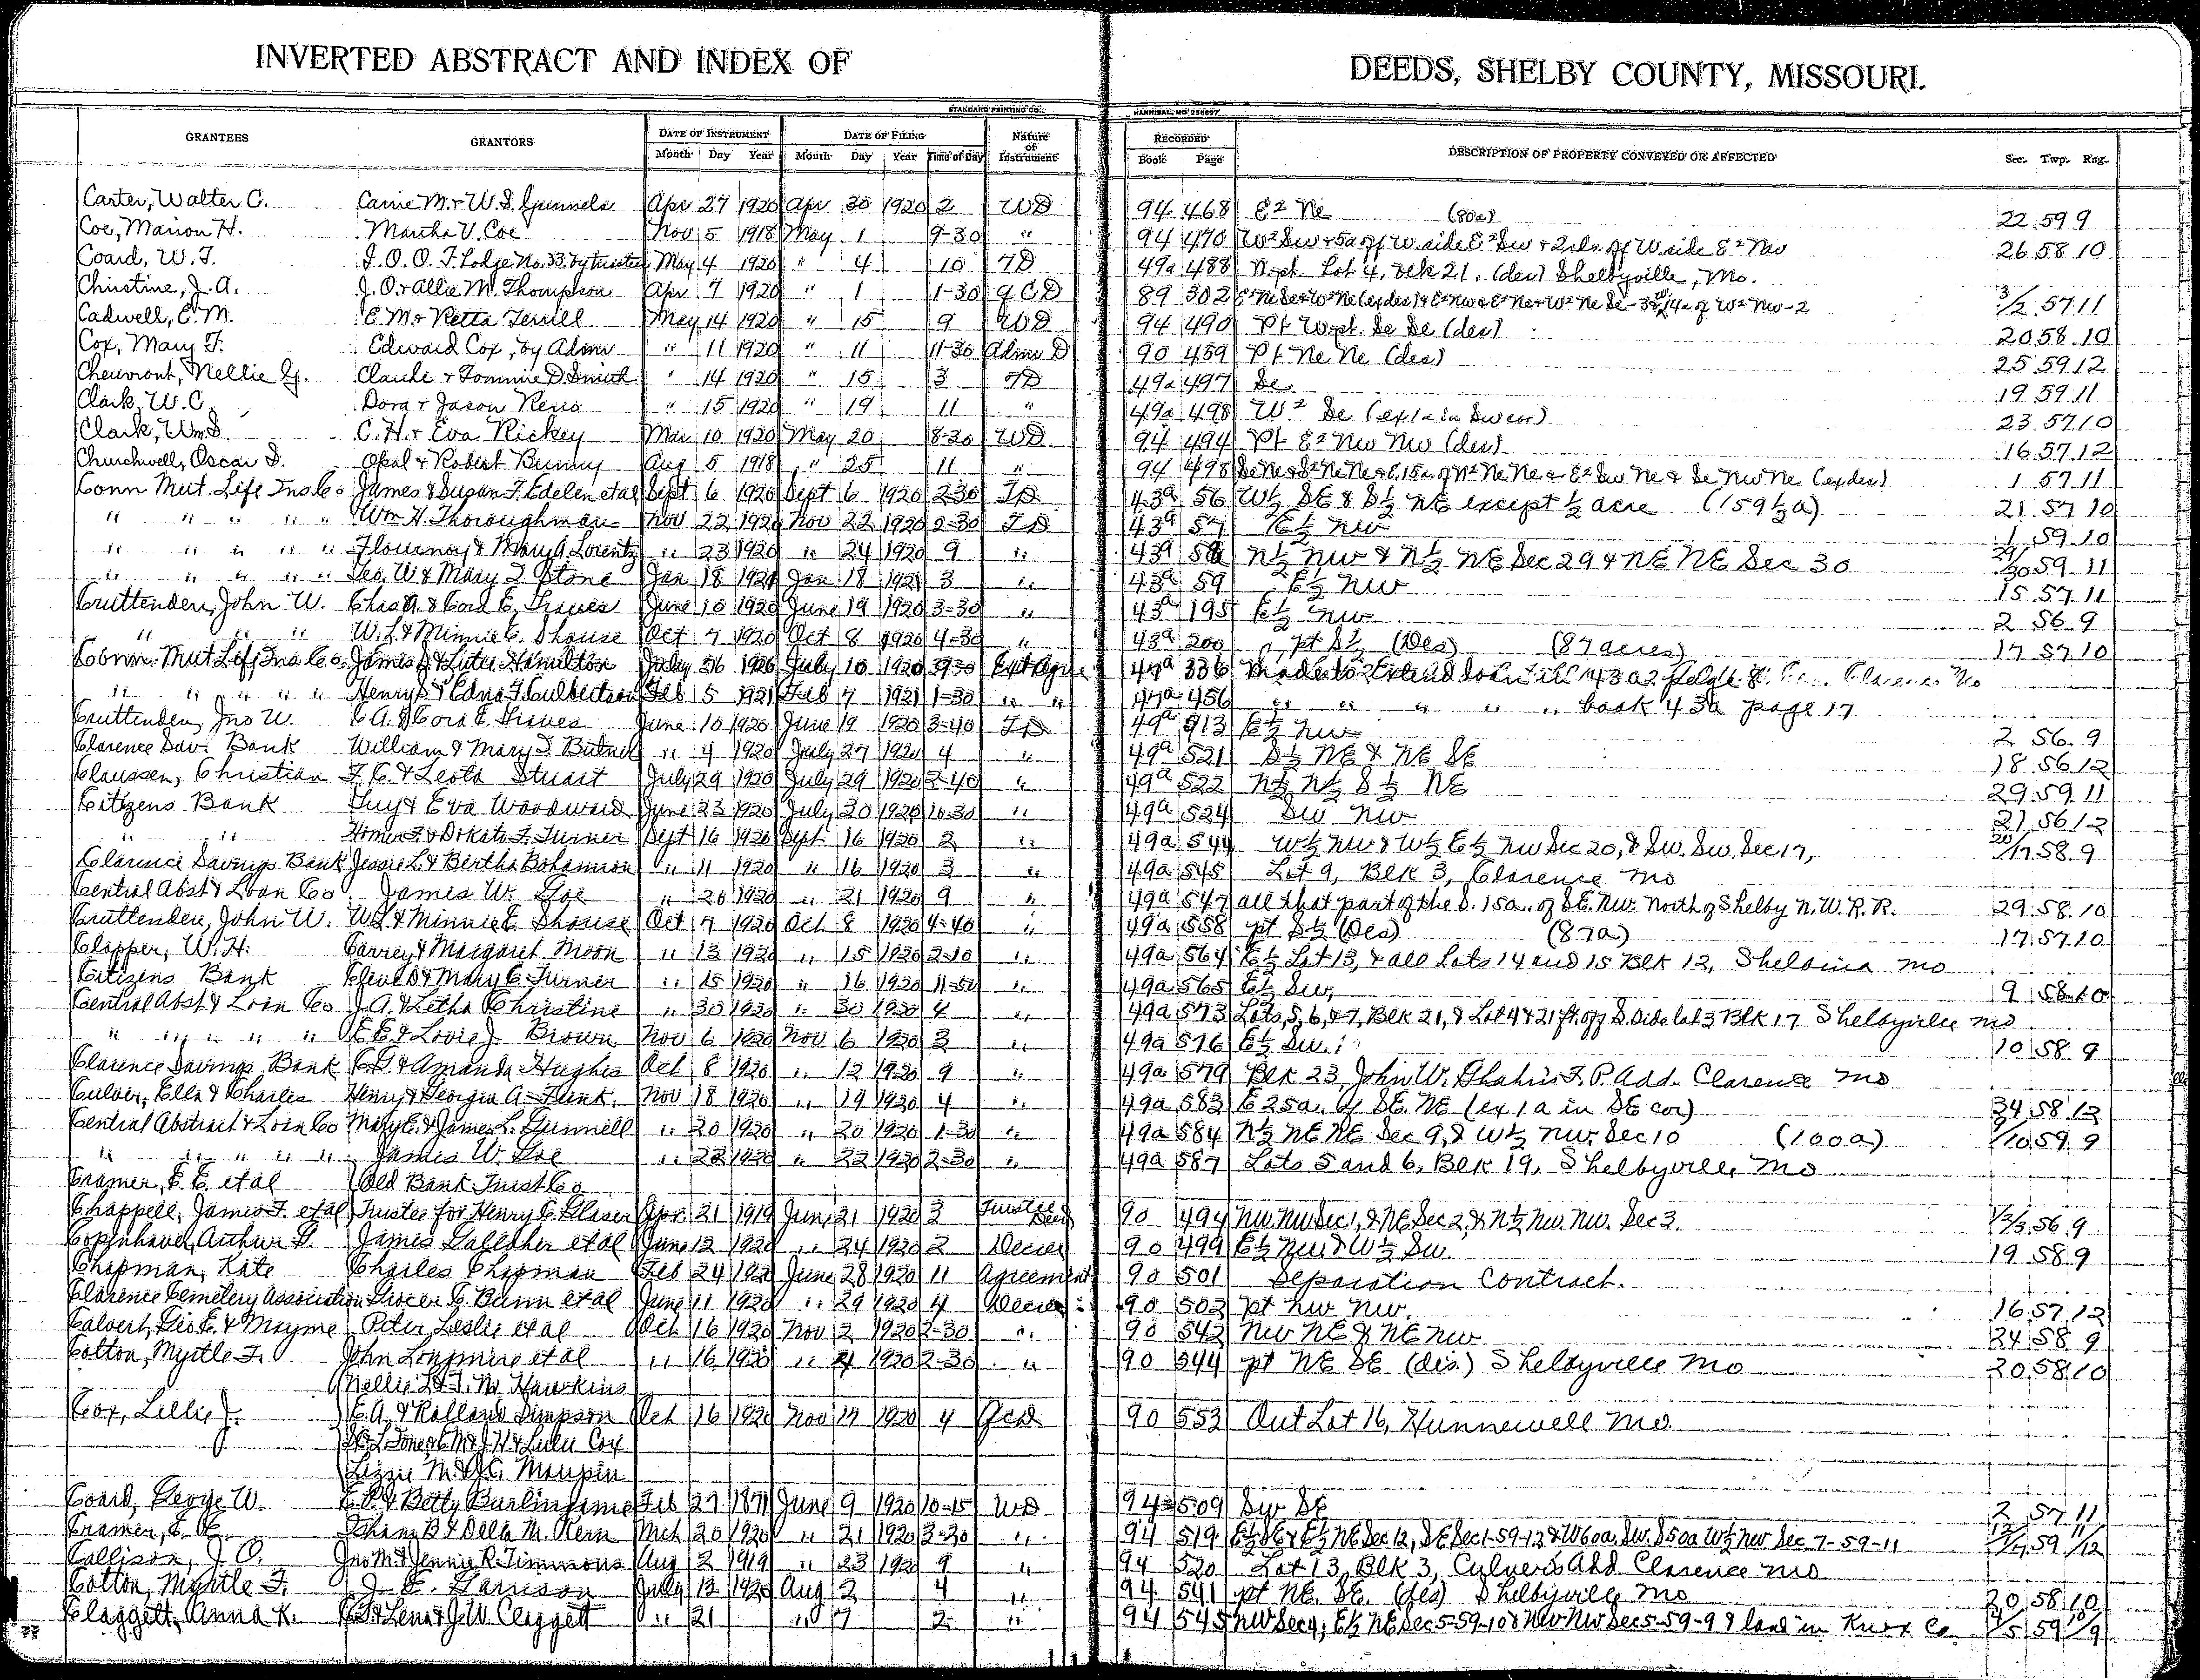 INVERTED ABSTRACT AND INDEX OF DEEDS, SHELBY COUNTY, MISSOURI.
STANDARD PRINTING CO., HANNIBAL, MO
GRANTEES GRANTORS DATE OF INSTRUMENT DATE OF FILING Nature of Instrument RECORDED DESCRIPTION OF PROPERTY CONVEYED OR AFFECTED Sec. Twp. Rng.
Month Day Year Month Day Year Time of Day Book Page
Carter, Walter C. Carrie M. & W.S. Gunnels Apr 27 1920 Apr 30 1920 2 WD 94 468 E2 Ne (80a) 22 59 9
Coe, Marion H. Martha V. Coe Nov 5 1918 May 1 9-30 " 94 470 W2 Sw & 5a off W. side E2 Sw & 2 rds. off W side E2 Nw 26 58 10
Coard, W.T. I.O.O.F. Lodge No. 33. by trustees May 4 1920 " 4 10 TD 49a 488 N. pt. Lot 4, Blk 21. (des) Shelbyville, Mo.
Christine, J.A. J.O. & Allie M. Thompson Apr 7 1920 " 1 1-30 QCD 89 302 3/2 57 11
Cadwell, E.M. E.M. & Retta Terrill May 14 1920 " 15 9 WD 94 490 Pt W. pt. Se Se (des) 20 58 10
Cox, Mary F. Edward Cox, by Admr " 11 1920 " 11 11-30 Admr D 90 459 Pt Ne Ne (des) 25 59 12
Cheuvront, Nellie G. Claude & Tommie D. Smith " 14 1920 " 15 3 TD 49a 497 Se 19 59 11
Clark, W.C. Dora & Jason Reno " 15 1920 " 19 11 " 49a 498 W2 Se (ex 1a in Sw cor) 23 57 10
Clark, Wm S. C.H. & Eva Rickey Mar 10 1920 May 20 8-30 WD 94 494 Pt E2 Nw Nw (des) 16 57 12
Churchwell, Oscar S. Opal & Robert Bunny Aug 5 1918 " 25 11 " 94 498 Se Ne & S2 Ne Ne & E. 15a. of N2 Ne Ne & E2 Sw Ne & Se Nw Ne (ex des) 1 57 11
Conn Mut. Life Ins Co James & Susan F. Edelen et al Sept 6 1920 Sept 6 1920 2-30 TD 43a 56 W½ SE & S½ NE except ½ acre (159½a) 21 57 10
" " " " " Wm H. Thoroughman Nov 22 1920 Nov 22 1920 2-30 TD 43a 57 E½ NW 1 59 10
" " " " " Flournoy & Mary A. Lorentz " 23 1920 " 24 1920 9 " 43a 58 N½ NW & N½ NE Sec 29 & NE NE Sec 30 29/30 59 11
" " " " " Geo. W & Mary I. Stone Jan 18 1921 Jan 18 1921 3 " 43a 59 E½ NW 15 57 11
Cruttenden, John W. Chas A. & Cora E. Graves June 10 1920 June 19 1920 3-30 " 43a 195 E½ NW 2 56 9
" " " W.L. & Minnie E. Shouse Oct 7 1920 Oct 8 1920 4-30 " 43a 200 pt S½ (Des) (87 acres) 17 57 10
Conn. Mut Life Ins Co. James & Lutie Hamilton July 1920 July 10 1920 9-30 Ext Agre 47a 336 Made to Extend
" " " " " Henry S & Edna F. Culbertson Feb 5 1921 Feb 7 1921 1-30 " " 47a 456 " " " " " book 43a page 17
Cruttenden, Jno W. C.A. & Cora E. Graves June 10 1920 June 19 1920 3-40 TD 49a 513 E½ NW 2 56 9
Clarence Sav. Bank William & Mary S. Butner " 4 1920 July 27 1920 4 " 49a 521 S½ NE & NE SE 18 56 12
Claussen, Christian F.C. & Leota Stuart July 29 1920 July 29 1920 2-40 " 49a 522 N½ N½ S½ NE 29 59 11
Citizens Bank Guy & Eva Woodward June 23 1920 July 30 1920 10-30 " 49a 524 SW NW 21 56 12
" " Homer F. & Dokata F. Turner Sept 16 1920 Sept 16 1920 2 " 49a 544 W½ NW & W½ E½ NW Sec 20, & SW. SW. Sec 17, 20/17 58 9
Clarence Savings Bank Jessie L. & Bertha Bohannon " 11 1920 " 16 1920 3 " 49a 545 Lot 9, Blk 3, Clarence Mo
Central Abst & Loan Co James W. Goe " 20 1920 " 21 1920 9 " 49a 547 all that part of the S. 15a. of SE. NW. North of Shelby N.W.R.R. 29 58 10
Cruttenden, John W. W.L. & Minnie E. Shouse Oct 7 1920 Oct 8 1920 4-40 " 49a 558 pt S½ (Des) (87a) 17 57 10
Clapper, W.H. Carrey & Margaret Moon " 13 1920 " 15 1920 2-10 " 49a 564 E½ Lot 13, & all Lots 14 and 15 Blk 12, Shelbina Mo
Citizens Bank Cleve D & Mary C. Turner " 15 1920 " 16 1920 11-50 " 49a 565 E½ SW, 9 58 10
Central Abst & Loan Co J.A. & Letha Christine " 30 1920 " 30 1920 4 " 49a 573 Lots, 5, 6, & 7, Blk 21, & Lot 4 & 21 ft. off S. Side lot 3 Blk 17 Shelbyville Mo
" " " " " E.E. & Lovie J. Brown Nov 6 1920 Nov 6 1920 3 " 49a 576 E½ SW. 10 58 9
Clarence Savings Bank C.G. & Amanda Hughes Oct 8 1920 " 12 1920 9 " 49a 579 Blk 23, John W. Shahis F.P. Add. Clarence Mo
Culver, Ella & Charles Henry & Georgia A. Flink. Nov 18 1920 " 19 1920 4 " 49a 583 E 25a. of SE. NE (ex 1a in SE cor) 34 58 12
Central Abstract & Loan Co Mary E. & James L. Gunnell " 20 1920 " 20 1920 1-30 " 49a 584 N½ NE NE Sec 9, & W½ NW. Sec 10 (100a) 9/10 59 9
" " " " " James W. Goe " 22 1920 " 22 1920 2-30 " 49a 587 Lots 5 and 6, Blk 19, Shelbyville, Mo
Cramer, E.E. et al Old Bank Trust Co
Chappell, James F. et al Trustee for Henry C. Glaser Apr 21 1919 June 21 1920 3 Trustee Deed 90 494 NW. NW Sec 1, & NE Sec 2, & N½ NW. NW. Sec 3. 1/2/3 56 9
Copenhaver, Arthur G. James Gallaher et al June 12 1920 " 24 1920 2 Decree 90 499 E½ NW & W½ SW. 19 58 9
Chapman, Kate Charles Chapman Feb 24 192 June 28 1920 11 Agreement 90 501 Separation Contract.
Clarence Cemetery Association Grocer C. Bunn et al June 11 1920 " 29 1920 4 Decree 90 502 pt NW NW. 16 57 12
Calvert, Geo E. & Mayme Peter Leslie et al Oct 16 1920 Nov 2 1920 2-30 " 90 542 NW NE & NE NW 24 58 9
Cotton, Myrtle F. John Longmire et al " 16 1920 " 4 1920 2-30 " 90 544 pt NE SE (dis.) Shelbyville Mo 20 58 10
Nellie L & T.M. Hawkins
Cox, Lillie J. E.A. & Rolland Simpson Oct 16 1920 Nov 17 1920 4 QCD 90 553 Out Lot 16, Hunnewell Mo.
Lulu Cox
Lizzie M. & J.C. Maupin
Coard, George W. E.P. & Betty Burlingame Feb 27 1871 June 9 1920 10-15 WD 94 509 SW SE 2 57 11
Cramer, E.E. Isham B & Della M. Kenn Mch 20 1920 " 21 1920 3-30 " 94 519 E½ SE & E½ NE Sec 12, SE Sec 1-59-12 & W 60a. SW. S 50a W½ NW Sec 7-59-11 59 11/12
Callison, J.O. Jno M. & Jennie R. Timmons Aug 2 1919 " 23 1920 9 " 94 520 Lot 13, Blk 3, Culver's Add Clarence Mo
Cotton, Myrtle F. J.E. Garrison July 13 1920 Aug 2 4 " 94 541 pt NE. SE. (des) Shelbyville Mo 20 58 10
Claggett, Anna K. & Lena & J.W. Claggett " 21 " 7 2 " 94 545 NW Sec 4; E½ NE Sec 5-59-10 & NW NW Sec 5-59-9 & land in Knox Co 4/5 59 10/9